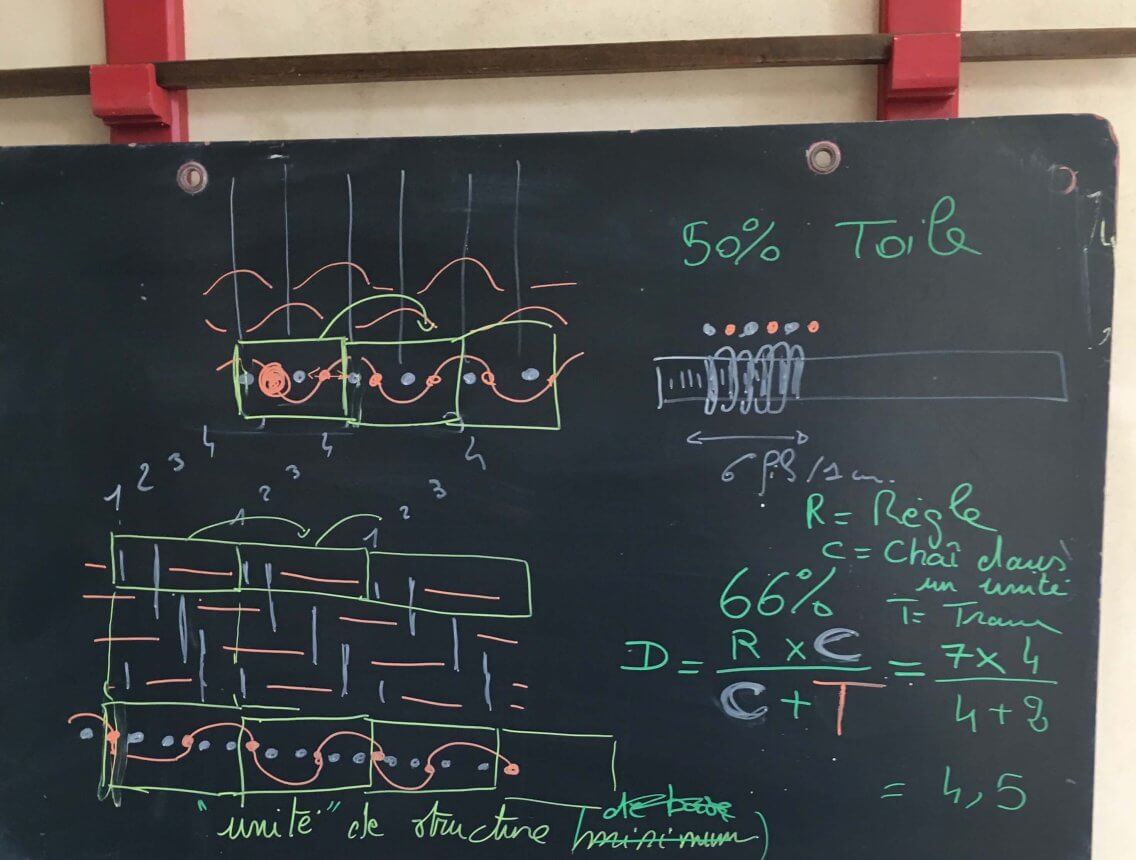 50% Toile
6 fils/1 cm.
4 4 4
1 2 3
1 2 3
1 2 3
R = Règle
C = Chaî dans
un unité
66% T = Tram
D = R x C / C + T = 7 x 4 / 4 + 2
= 4,5
de base
"unité" de structure (minimum)